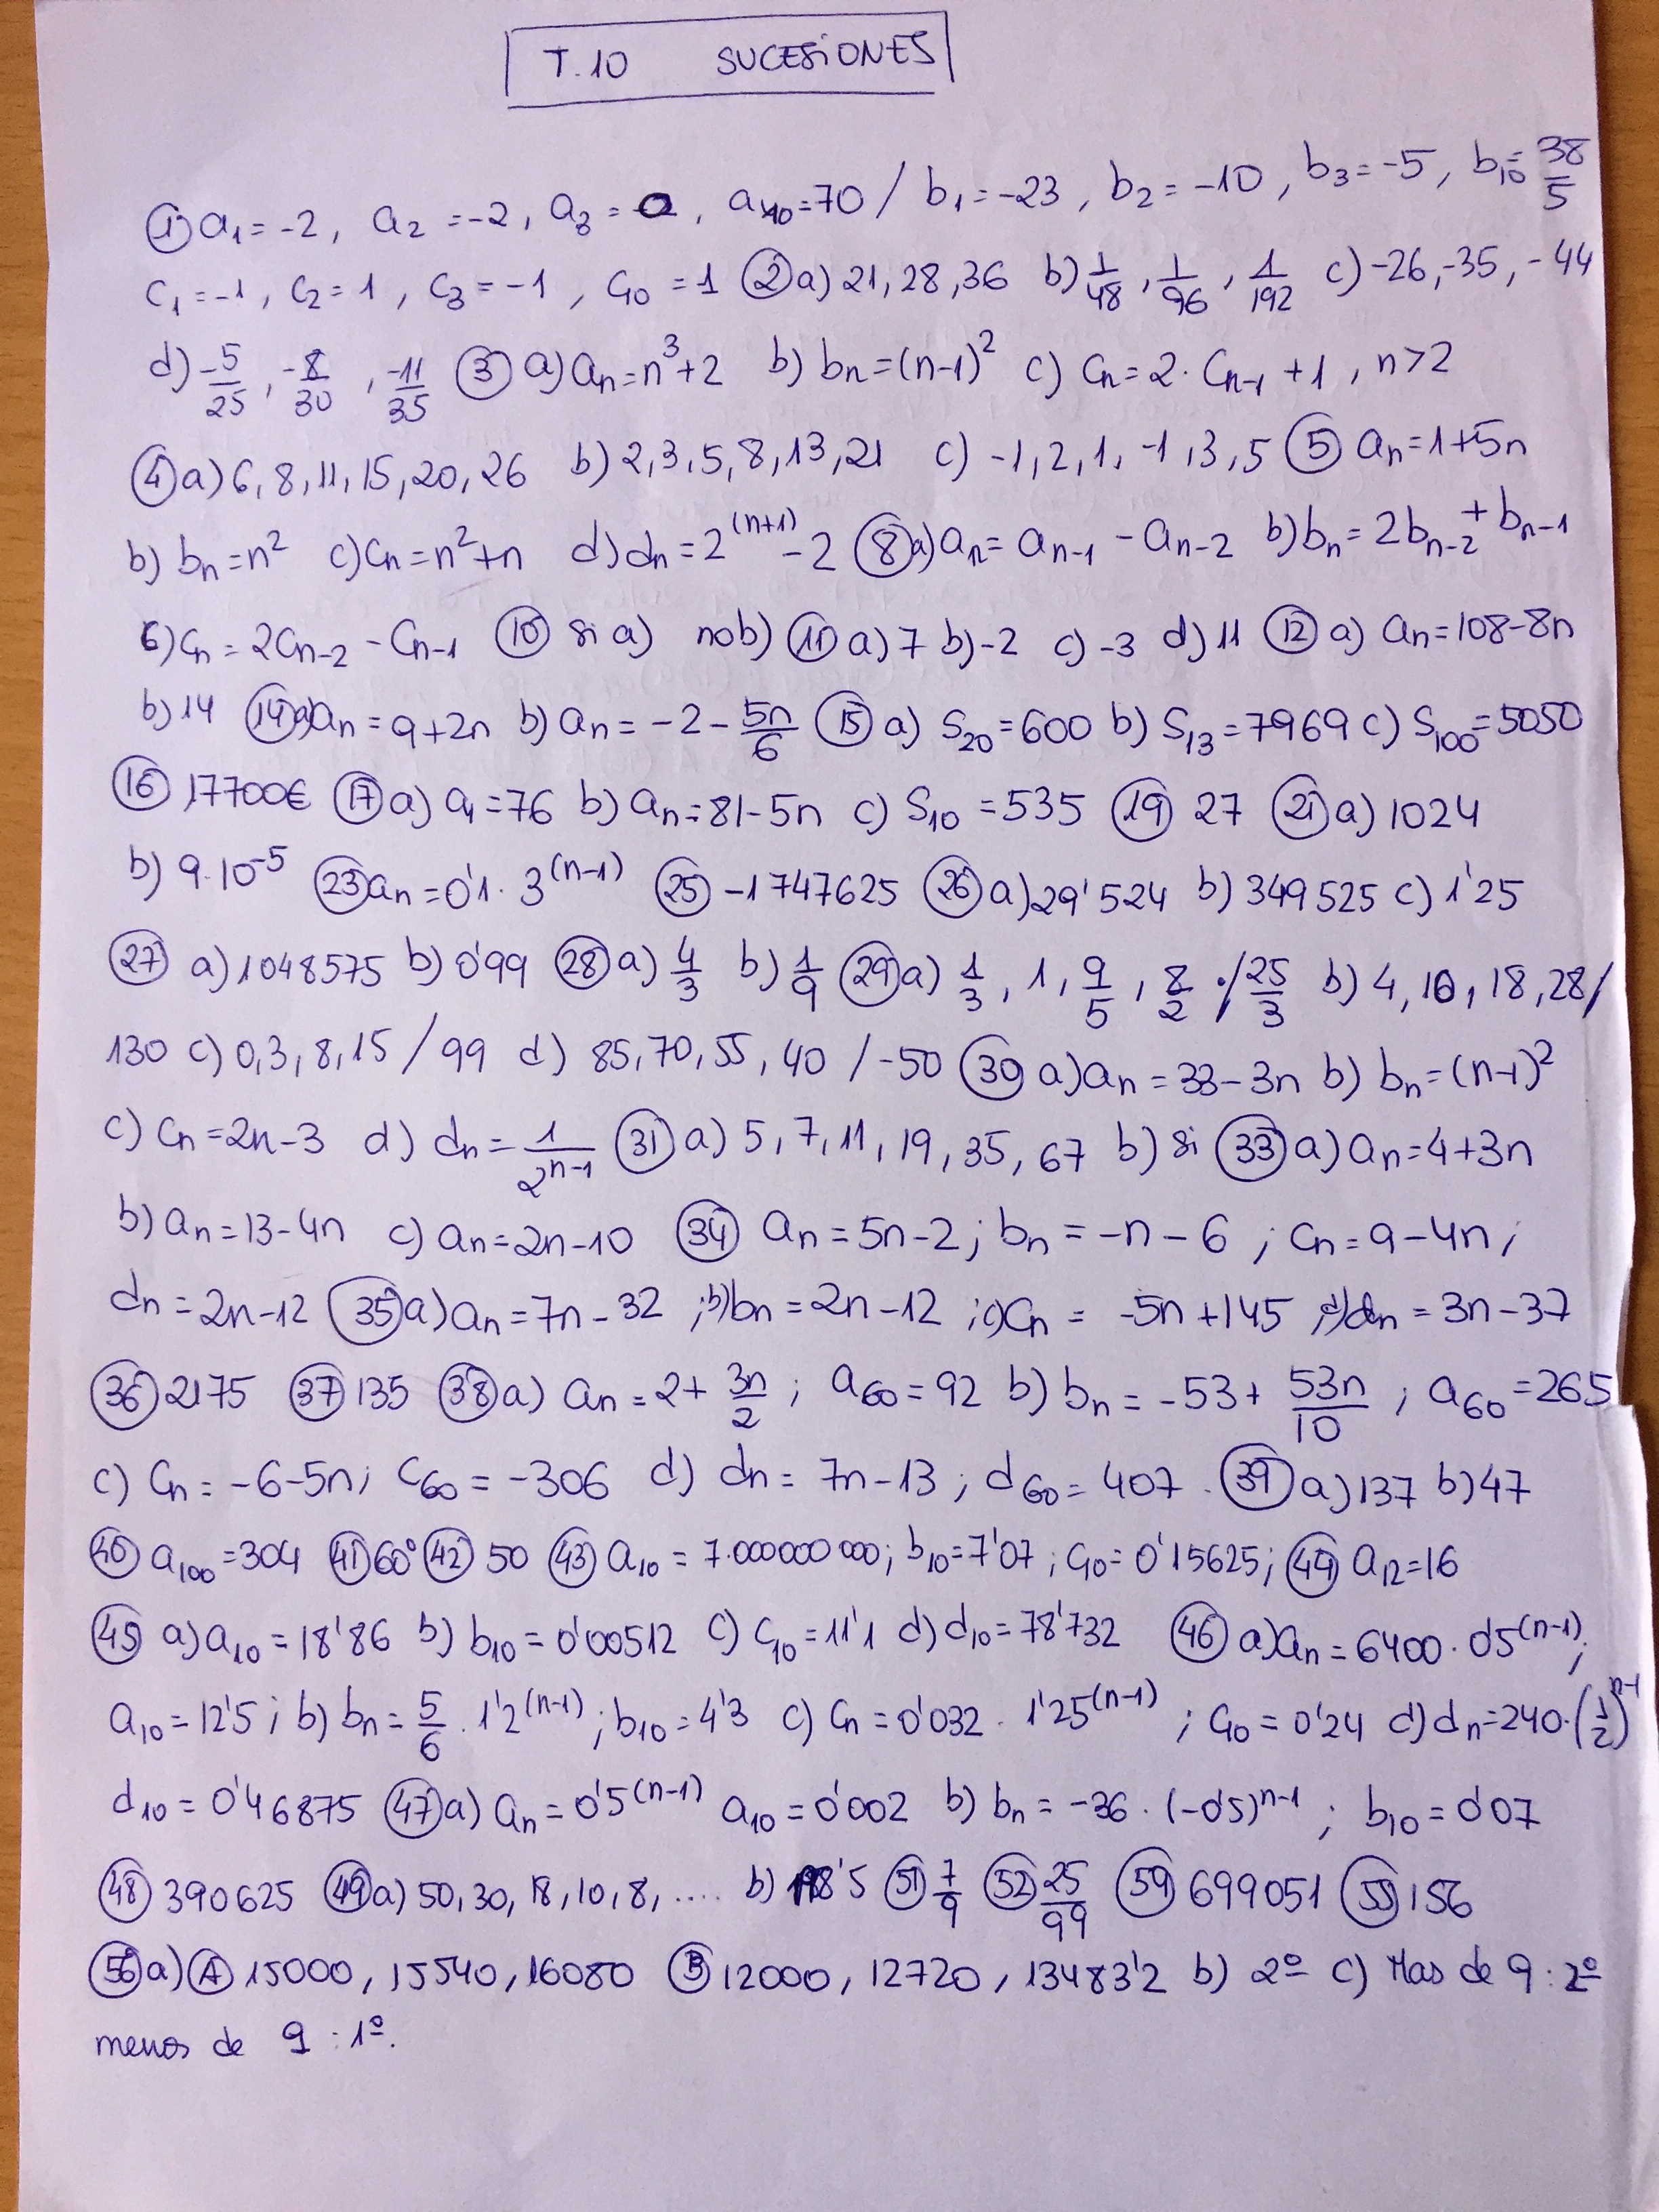 T.10 SUCESIONES
① a₁ = -2, a₂ = -2, a₃ = 0, a₁₀ = 70 / b₁ = -23, b₂ = -10, b₃ = -5, b₁₀ = 38/5
c₁ = -1, c₂ = 1, c₃ = -1, c₁₀ = 1 ② a) 21, 28, 36 b) 1/48, 1/96, 1/192 c) -26, -35, -44
d) -5/25, -8/30, -11/35 ③ a) aₙ = n³+2 b) bₙ = (n-1)² c) cₙ = 2·cₙ₋₁ +1, n>2
④ a) 6, 8, 11, 15, 20, 26 b) 2, 3, 5, 8, 13, 21 c) -1, 2, 1, -1, 3, 5 ⑤ aₙ = 1+5n
b) bₙ = n² c) cₙ = n²+n d) dₙ = 2⁽ⁿ⁺¹⁾ - 2 ⑧ a) aₙ = aₙ₋₁ - aₙ₋₂ b) bₙ = 2bₙ₋₂ + bₙ₋₁
c) cₙ = 2cₙ₋₂ - cₙ₋₁ ⑩ si a) no b) ⑪ a) 7 b) -2 c) -3 d) 11 ⑫ a) aₙ = 108-8n
b) 14 ⑭ a) aₙ = 9+2n b) aₙ = -2 - 5n/6 ⑮ a) S₂₀ = 600 b) S₁₃ = 7969 c) S₁₀₀ = 5050
⑯ 17700€ ⑰ a) a₁ = 76 b) aₙ = 81-5n c) S₁₀ = 535 ⑲ 27 ㉑ a) 1024
b) 9·10⁻⁵ ㉓ aₙ = 0'1·3⁽ⁿ⁻¹⁾ ㉕ -1747625 ㉖ a) 29'524 b) 349525 c) 1'25
㉗ a) 1048575 b) 0'99 ㉘ a) 4/3 b) 1/9 ㉙ a) 1/3, 1, 9/5, 8/2 / 25/3 b) 4, 10, 18, 28/
130 c) 0, 3, 8, 15 / 99 d) 85, 70, 55, 40 / -50 ㉚ a) aₙ = 33-3n b) bₙ = (n-1)²
c) cₙ = 2n-3 d) dₙ = 1/2ⁿ⁻¹ ㉛ a) 5, 7, 11, 19, 35, 67 b) si ㉝ a) aₙ = 4+3n
b) aₙ = 13-4n c) aₙ = 2n-10 ㉞ aₙ = 5n-2; bₙ = -n-6; cₙ = 9-4n;
dₙ = 2n-12 ㉟ a) aₙ = 7n-32; b) bₙ = 2n-12; c) cₙ = -5n+145; d) dₙ = 3n-37
㊱ 2175 ㊲ 135 ㊳ a) aₙ = 2+ 3n/2; a₆₀ = 92 b) bₙ = -53+ 53n/10; a₆₀ = 265
c) cₙ = -6-5n; c₆₀ = -306 d) dₙ = 7n-13; d₆₀ = 407. ㊴ a) 137 b) 47
㊵ a₁₀₀ = 304 ㊶ 60° ㊷ 50 ㊸ a₁₀ = 7·000000000; b₁₀ = 7'07; c₁₀ = 0'15625; ㊹ a₁₂ = 16
㊺ a) a₁₀ = 18'86 b) b₁₀ = 0'00512 c) c₁₀ = 11'1 d) d₁₀ = 78'732 ㊻ a) aₙ = 6400·0'5⁽ⁿ⁻¹⁾;
a₁₀ = 12'5; b) bₙ = 5/6·1'2⁽ⁿ⁻¹⁾; b₁₀ = 4'3 c) cₙ = 0'032·1'25⁽ⁿ⁻¹⁾; c₁₀ = 0'24 d) dₙ = 240·(1/2)ⁿ⁻¹
d₁₀ = 0'46875 ㊼ a) aₙ = 0'5⁽ⁿ⁻¹⁾ a₁₀ = 0'002 b) bₙ = -36·(-0'5)ⁿ⁻¹; b₁₀ = 0'07
㊽ 390625 ㊾ a) 50, 30, 18, 10, 8, .... b) (51) 7/9 (52) 25/99 (59) 699051 (55) 156
(56) a) Ⓐ 15000, 15540, 16080 Ⓑ 12000, 12720, 13483'2 b) 2º c) Mas de 9 : 2º
menos de 9 : 1º.